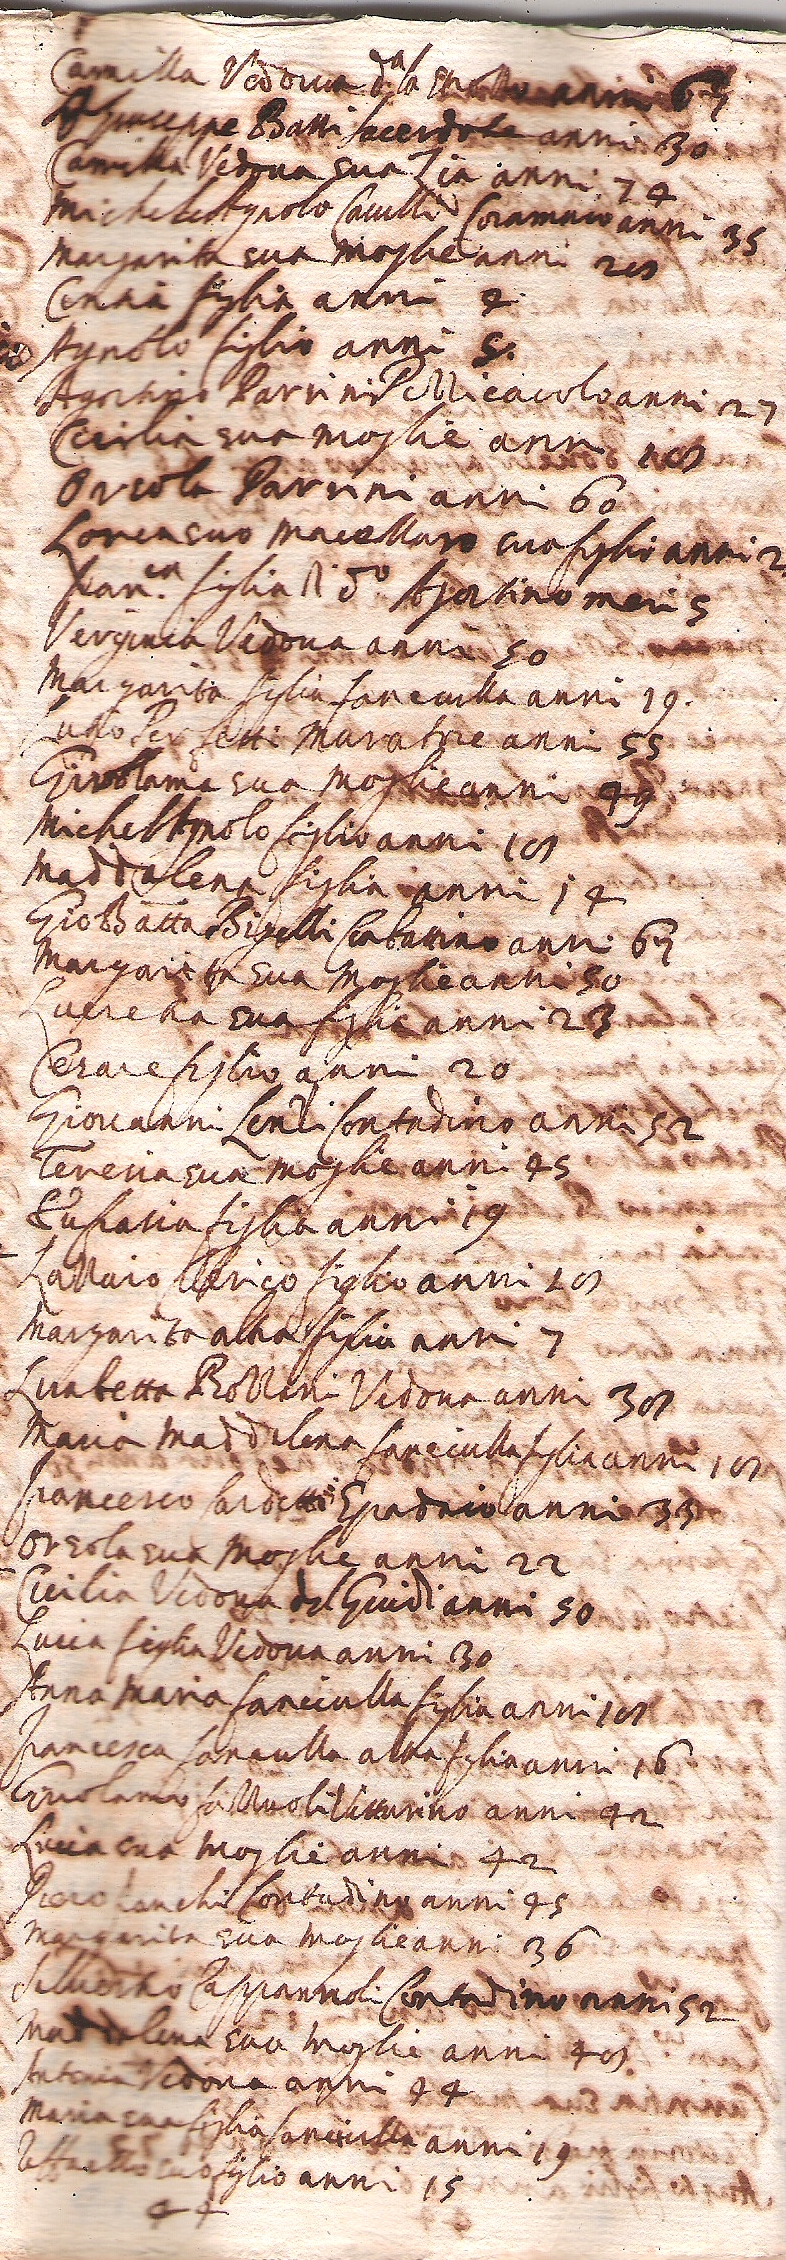 Camilla Vedova d.ª la anni 67
Giuseppe Batti sacerdote anni 30
Camilla Vedova sua Zia anni 74
Michelagnolo Corammaio anni 35
Margarita sua moglie anni 28
figlia anni 4
Agnolo figlio anni 5.
Agostino Parrini Pollicaiolo anni 27
Cecilia sua moglie anni 18
Orsola Parrini anni 60
Lorenzo Macellaro suo figlio anni
Fran.ca figlia di d.o Agostino mesi 5
Verginia Vedova anni 50
Margarita figlia fanciulla anni 19.
Perfetti Muratore anni 55
Girolama sua moglie anni 49
Michelagnolo figlio anni 18
Maddalena figlia anni 14
Gio Batta Bigelli Ciabattino anni 67
Margarita sua moglie anni 50
Lucretia sua figlia anni 23
Cesare figlio anni 20
Giovanni Lenzi Contadino anni 52
Teresia sua moglie anni 45
Eufrasia figlia anni 19
Clerico figlio anni 18
Margarita altra figlia anni 7
Lisabetta Vedova anni 38
Maria Maddalena fanciulla figlia anni 18
Francesco Spadaio anni 33
Orsola sua moglie anni 22
Cicilia Vedova del Guidi anni 50
Lucia figlia Vedova anni 30
Anna Maria fanciulla figlia anni 18
Francesca fanciulla altra figlia anni 16
Girolamo Vetturino anni 42
Lucia sua moglie anni 42
Piero Contadino anni 45
Margarita sua moglie anni 36
Silvestro Cappannoli Contadino anni 52
Maddalena sua moglie anni 48
Antonia Vedova anni 44
Maria sua figlia fanciulla anni 19
suo figlio anni 15
44